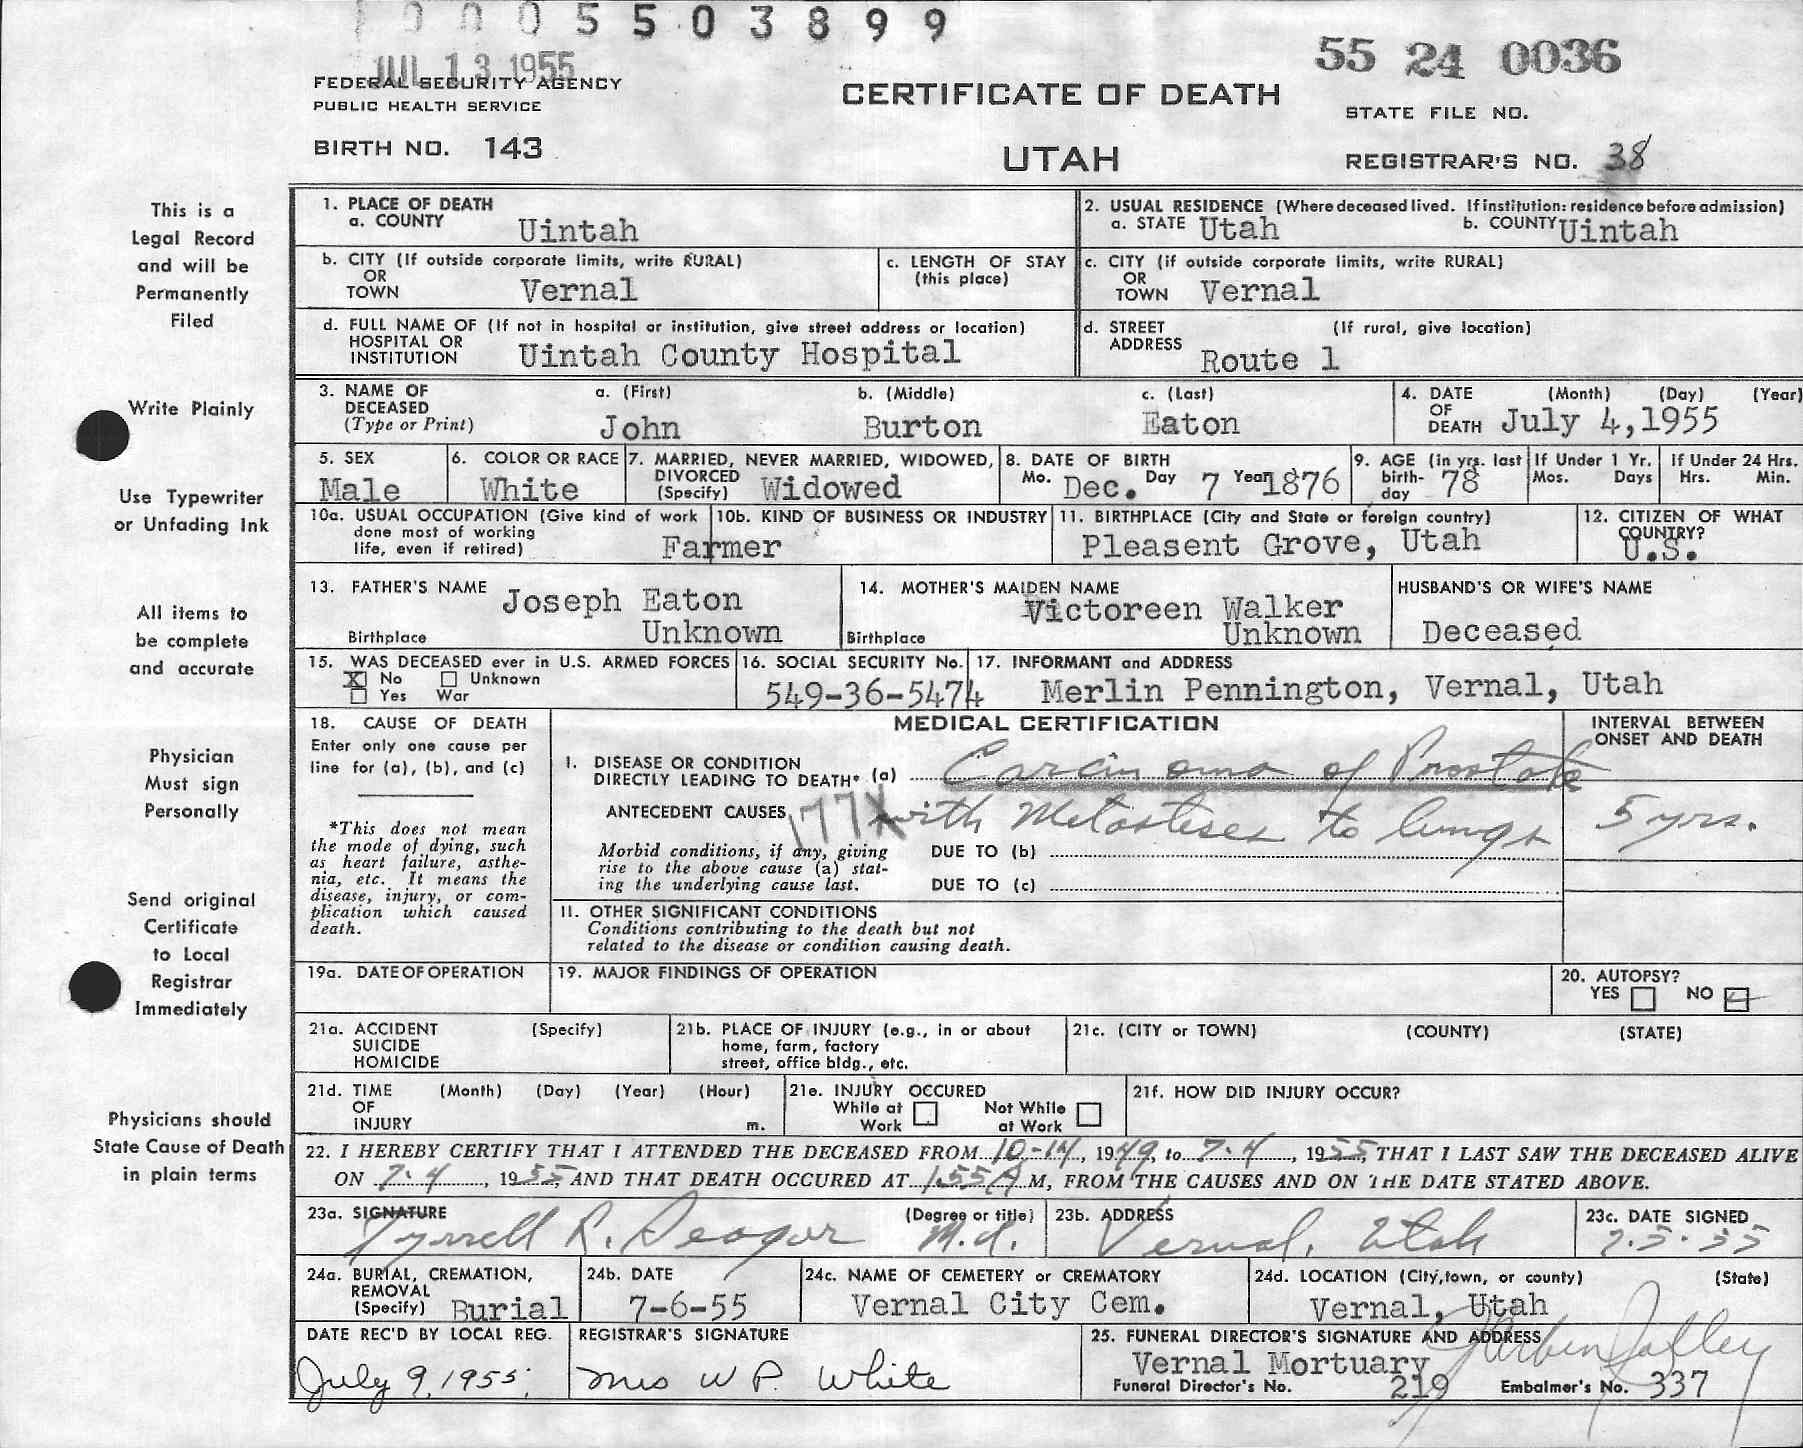 0005503899
JUL 13 1955
55 24 0036
FEDERAL SECURITY AGENCY
PUBLIC HEALTH SERVICE
CERTIFICATE OF DEATH
STATE FILE NO.
BIRTH NO. 143
UTAH
REGISTRAR'S NO. 38
This is a
Legal Record
and will be
Permanently
Filed
Write Plainly
Use Typewriter
or Unfading Ink
All items to
be complete
and accurate
Physician
Must sign
Personally
Send original
Certificate
to Local
Registrar
Immediately
Physicians should
State Cause of Death
in plain terms
1. PLACE OF DEATH
a. COUNTY Uintah
2. USUAL RESIDENCE (Where deceased lived. If institution: residence before admission)
a. STATE Utah b. COUNTY Uintah
b. CITY (If outside corporate limits, write RURAL)
OR
TOWN Vernal
c. LENGTH OF STAY
(this place)
c. CITY (if outside corporate limits, write RURAL)
OR
TOWN Vernal
d. FULL NAME OF (If not in hospital or institution, give street address or location)
HOSPITAL OR
INSTITUTION Uintah County Hospital
d. STREET (If rural, give location)
ADDRESS Route 1
3. NAME OF a. (First) b. (Middle) c. (Last)
DECEASED
(Type or Print) John Burton Eaton
4. DATE (Month) (Day) (Year)
OF
DEATH July 4,1955
5. SEX
Male
6. COLOR OR RACE
White
7. MARRIED, NEVER MARRIED, WIDOWED,
DIVORCED
(Specify) Widowed
8. DATE OF BIRTH
Mo. Dec. Day 7 Year 1876
9. AGE (in yrs. last
birth-
day 78
If Under 1 Yr.
Mos. Days
If Under 24 Hrs.
Hrs. Min.
10a. USUAL OCCUPATION (Give kind of work
done most of working
life, even if retired) Farmer
10b. KIND OF BUSINESS OR INDUSTRY
11. BIRTHPLACE (City and State or foreign country)
Pleasent Grove, Utah
12. CITIZEN OF WHAT
COUNTRY?
U.S.
13. FATHER'S NAME Joseph Eaton
Birthplace Unknown
14. MOTHER'S MAIDEN NAME
Victoreen Walker
Birthplace Unknown
HUSBAND'S OR WIFE'S NAME
Deceased
15. WAS DECEASED ever in U.S. ARMED FORCES
X No Unknown
Yes War
16. SOCIAL SECURITY No.
549-36-5474
17. INFORMANT and ADDRESS
Merlin Pennington, Vernal, Utah
18. CAUSE OF DEATH
Enter only one cause per
line for (a), (b), and (c)
*This does not mean
the mode of dying, such
as heart failure, asthe-
nia, etc. It means the
disease, injury, or com-
plication which caused
death.
MEDICAL CERTIFICATION
INTERVAL BETWEEN
ONSET AND DEATH
I. DISEASE OR CONDITION
DIRECTLY LEADING TO DEATH* (a) Carcinoma of Prostate
ANTECEDENT CAUSES 177X with Metastises to lungs 5 yrs.
Morbid conditions, if any, giving
rise to the above cause (a) stat-
ing the underlying cause last.
DUE TO (b)
DUE TO (c)
II. OTHER SIGNIFICANT CONDITIONS
Conditions contributing to the death but not
related to the disease or condition causing death.
19a. DATE OF OPERATION
19. MAJOR FINDINGS OF OPERATION
20. AUTOPSY?
YES NO
21a. ACCIDENT (Specify)
SUICIDE
HOMICIDE
21b. PLACE OF INJURY (e.g., in or about
home, farm, factory
street, office bldg., etc.
21c. (CITY or TOWN) (COUNTY) (STATE)
21d. TIME (Month) (Day) (Year) (Hour)
OF
INJURY m.
21e. INJURY OCCURED
While at Work
Not While at Work
21f. HOW DID INJURY OCCUR?
22. I HEREBY CERTIFY THAT I ATTENDED THE DECEASED FROM 10-14, 1949, to 7-4, 1955, THAT I LAST SAW THE DECEASED ALIVE
ON 7-4, 1955, AND THAT DEATH OCCURED AT 1:55 A M, FROM THE CAUSES AND ON THE DATE STATED ABOVE.
23a. SIGNATURE (Degree or title)
Tyrrell R. Seager M.d.
23b. ADDRESS
Vernal, Utah
23c. DATE SIGNED
7-5-55
24a. BURIAL, CREMATION,
REMOVAL
(Specify) Burial
24b. DATE
7-6-55
24c. NAME OF CEMETERY or CREMATORY
Vernal City Cem.
24d. LOCATION (City,town, or county) (State)
Vernal, Utah
DATE REC'D BY LOCAL REG.
July 9, 1955
REGISTRAR'S SIGNATURE
Mrs W P. White
25. FUNERAL DIRECTOR'S SIGNATURE AND ADDRESS
Vernal Mortuary
Funeral Director's No. 219 Embalmer's No. 337